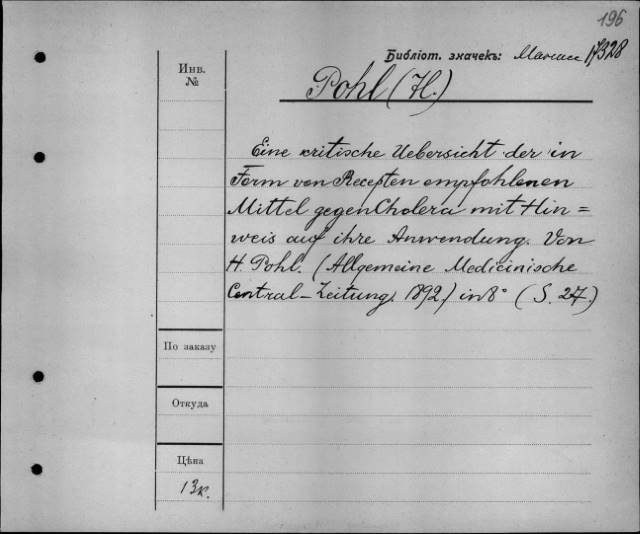 196
Библіот. значекъ: 17328
Инв.
№
Pohl (H.)
Eine kritische Uebersicht der in
Form von Recepten empfohlenen
Mittel gegen Cholera mit Hin=
weis auf ihre Anwendung. Von
H. Pohl. (Allgemeine Medicinische
Central-Zeitung, 1892.) in 8° (S. 27.)
По заказу
Откуда
Цѣна
13к.